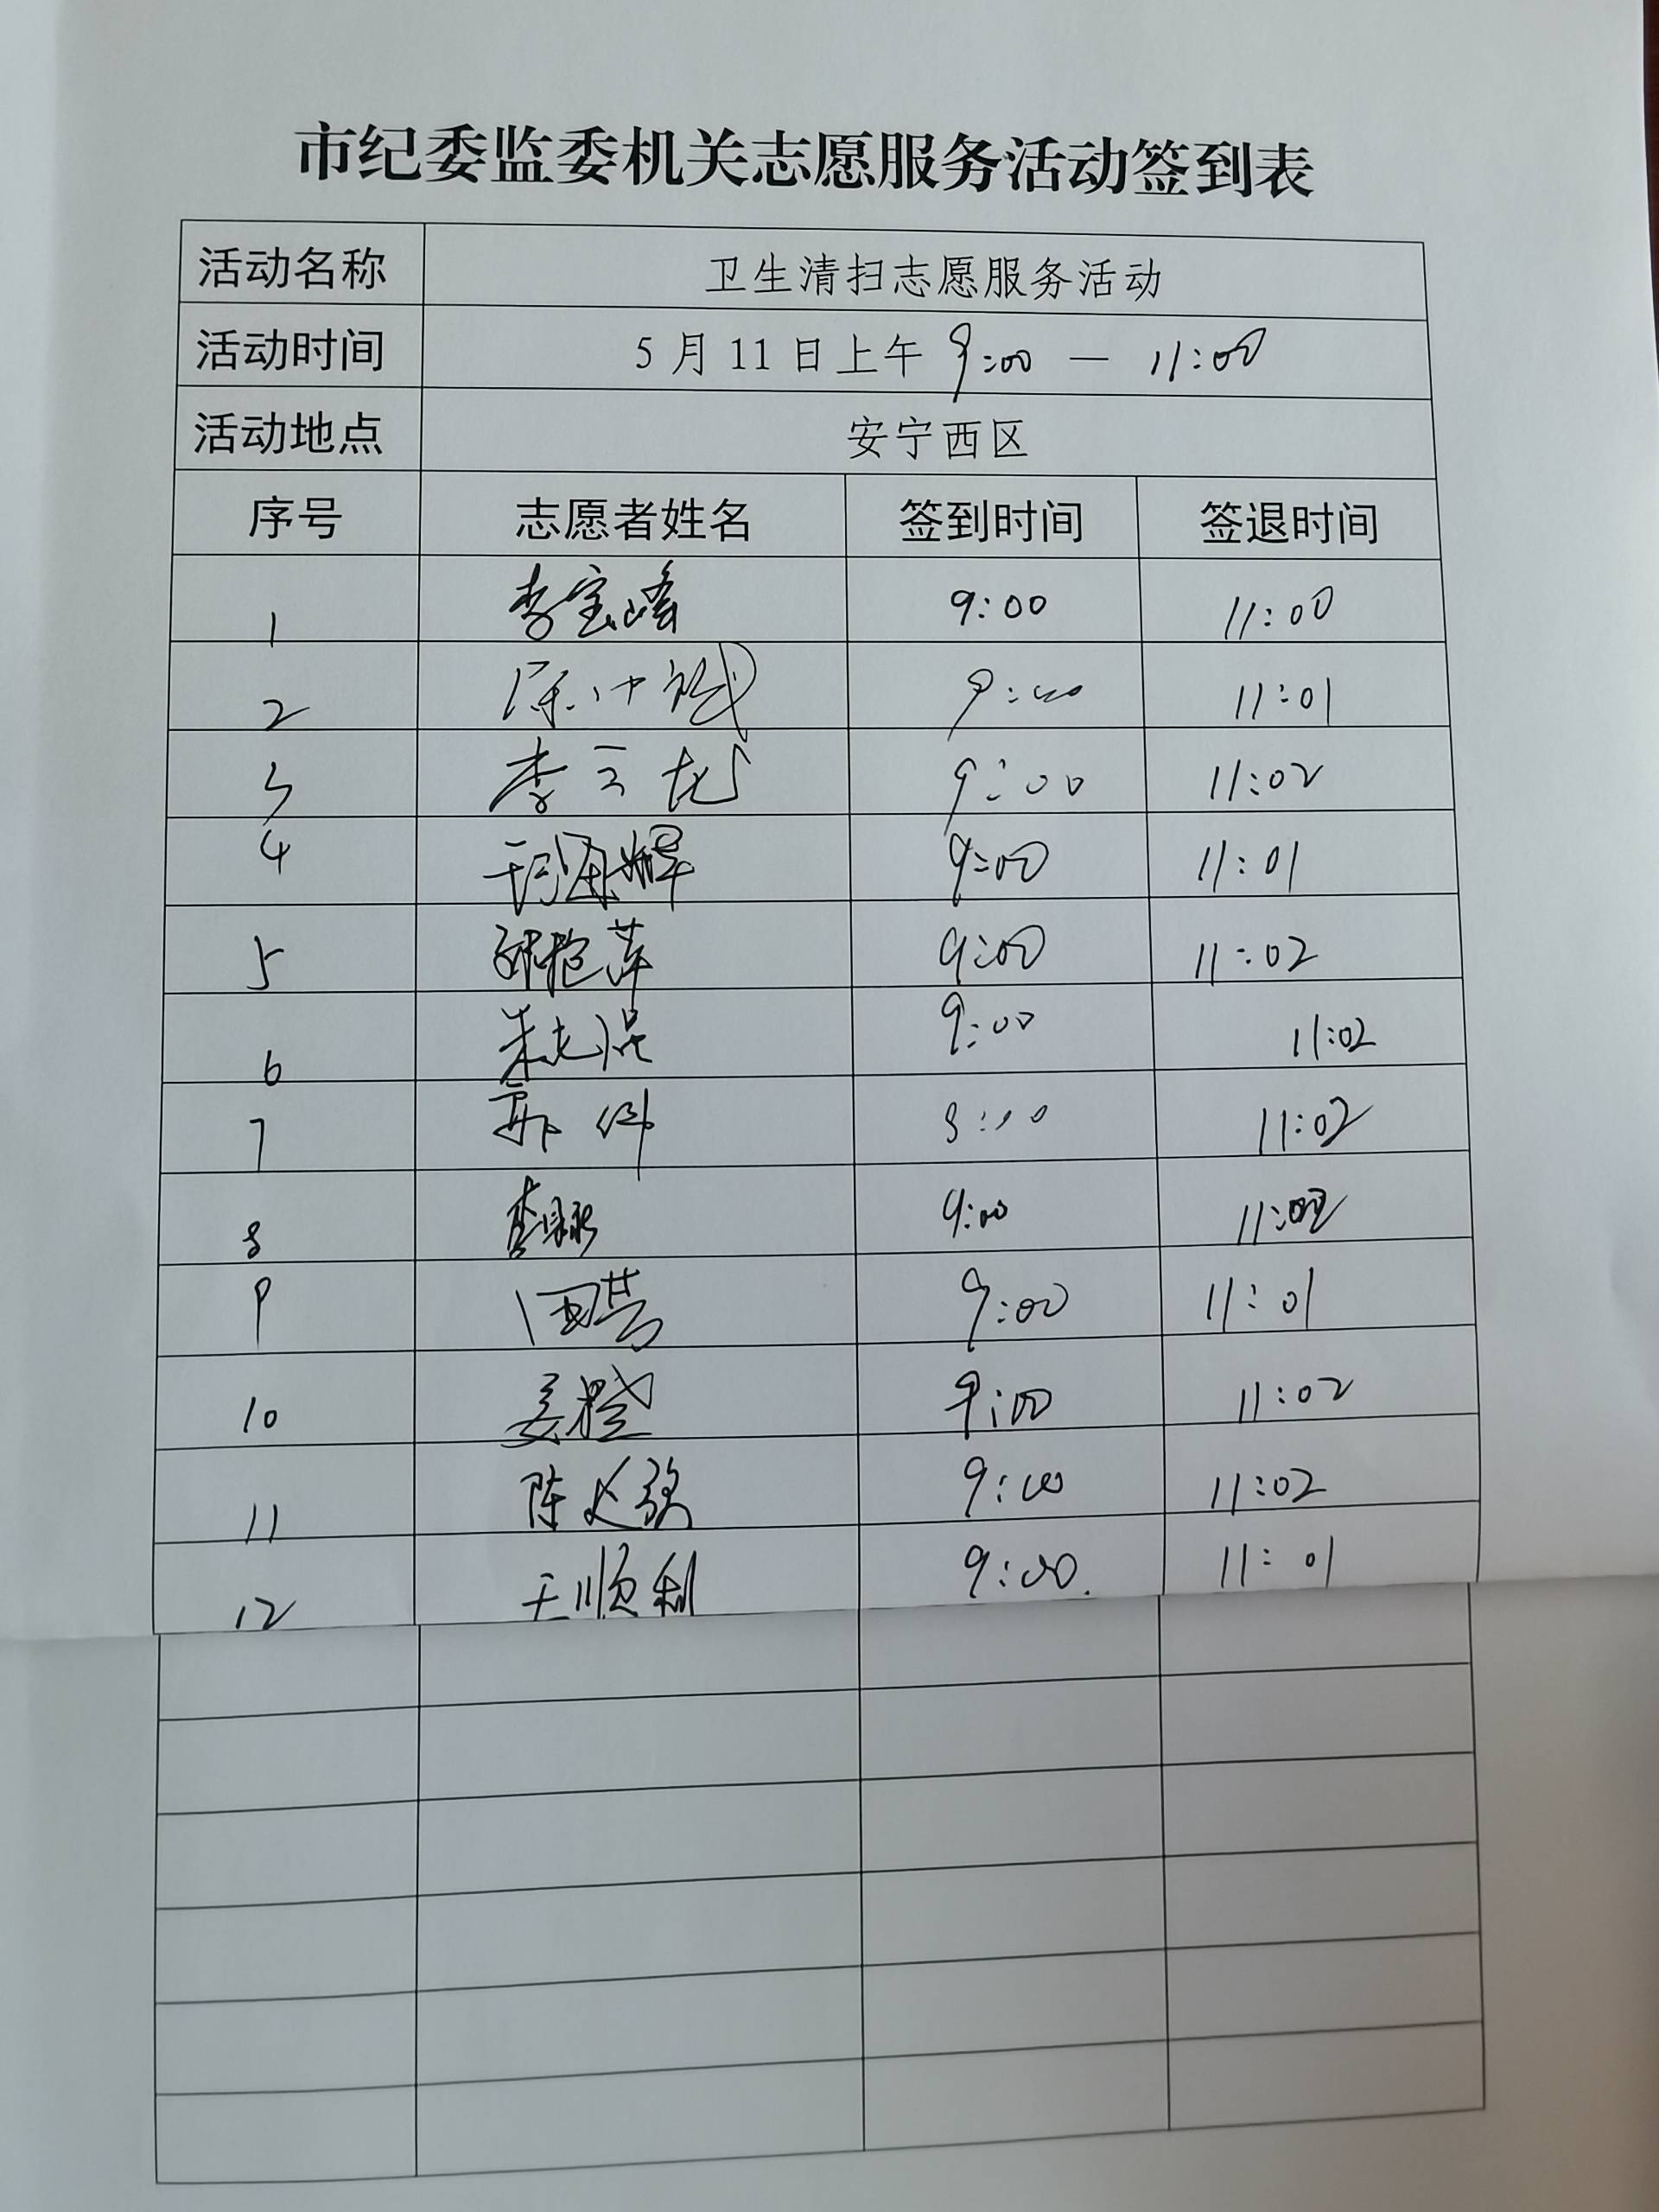 市纪委监委机关志愿服务活动签到表
活动名称 卫生清扫志愿服务活动
活动时间 5月11日上午 9:00 — 11:00
活动地点 安宁西区
序号 志愿者姓名 签到时间 签退时间
1 李宝峰 9:00 11:00
2 9:00 11:01
3 李云龙 9:00 11:02
4 9:00 11:01
5 9:00 11:02
6 朱志强 9:00 11:02
7 11:02
8 9:00 11:02
9 9:00 11:01
10 姜橙 9:00 11:02
11 9:00 11:02
12 王顺利 9:00. 11:01